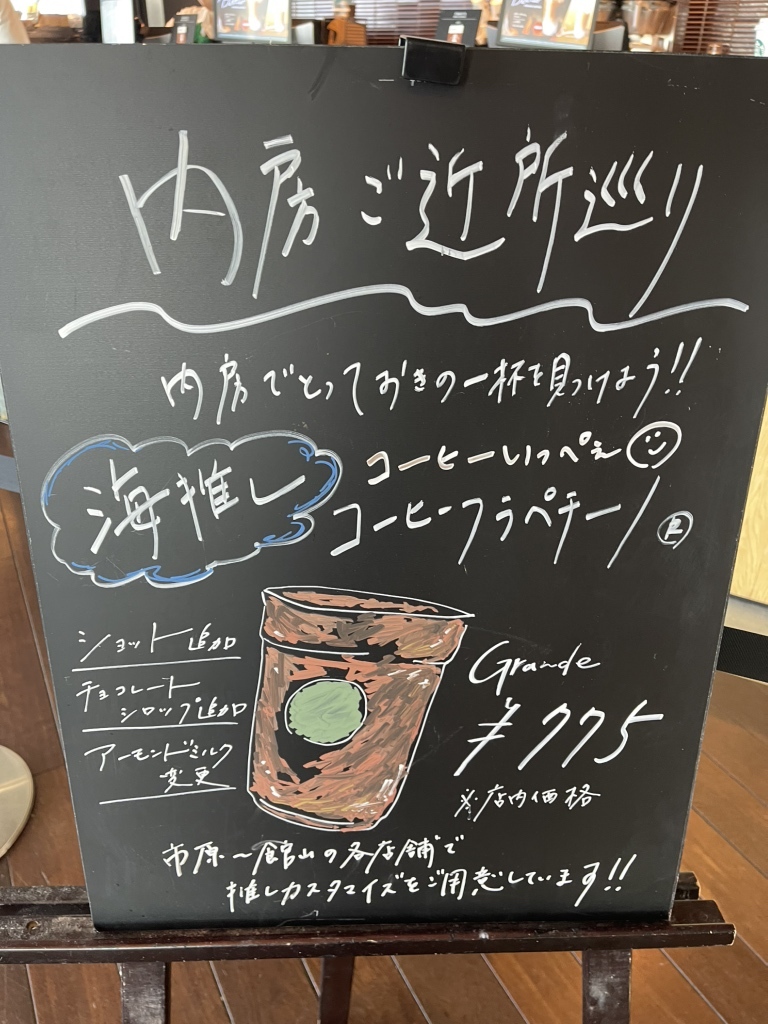 内房ご近所巡り
内房でとっておきの一杯を見つけよう!!
海推し
コーヒーいっぺぇ
コーヒーフラペチーノ®
ショット追加
チョコレート
シロップ追加
アーモンドミルク
変更
Grande
¥775
※店内価格
市原〜館山の各店舗で
推しカスタマイズをご用意しています!!